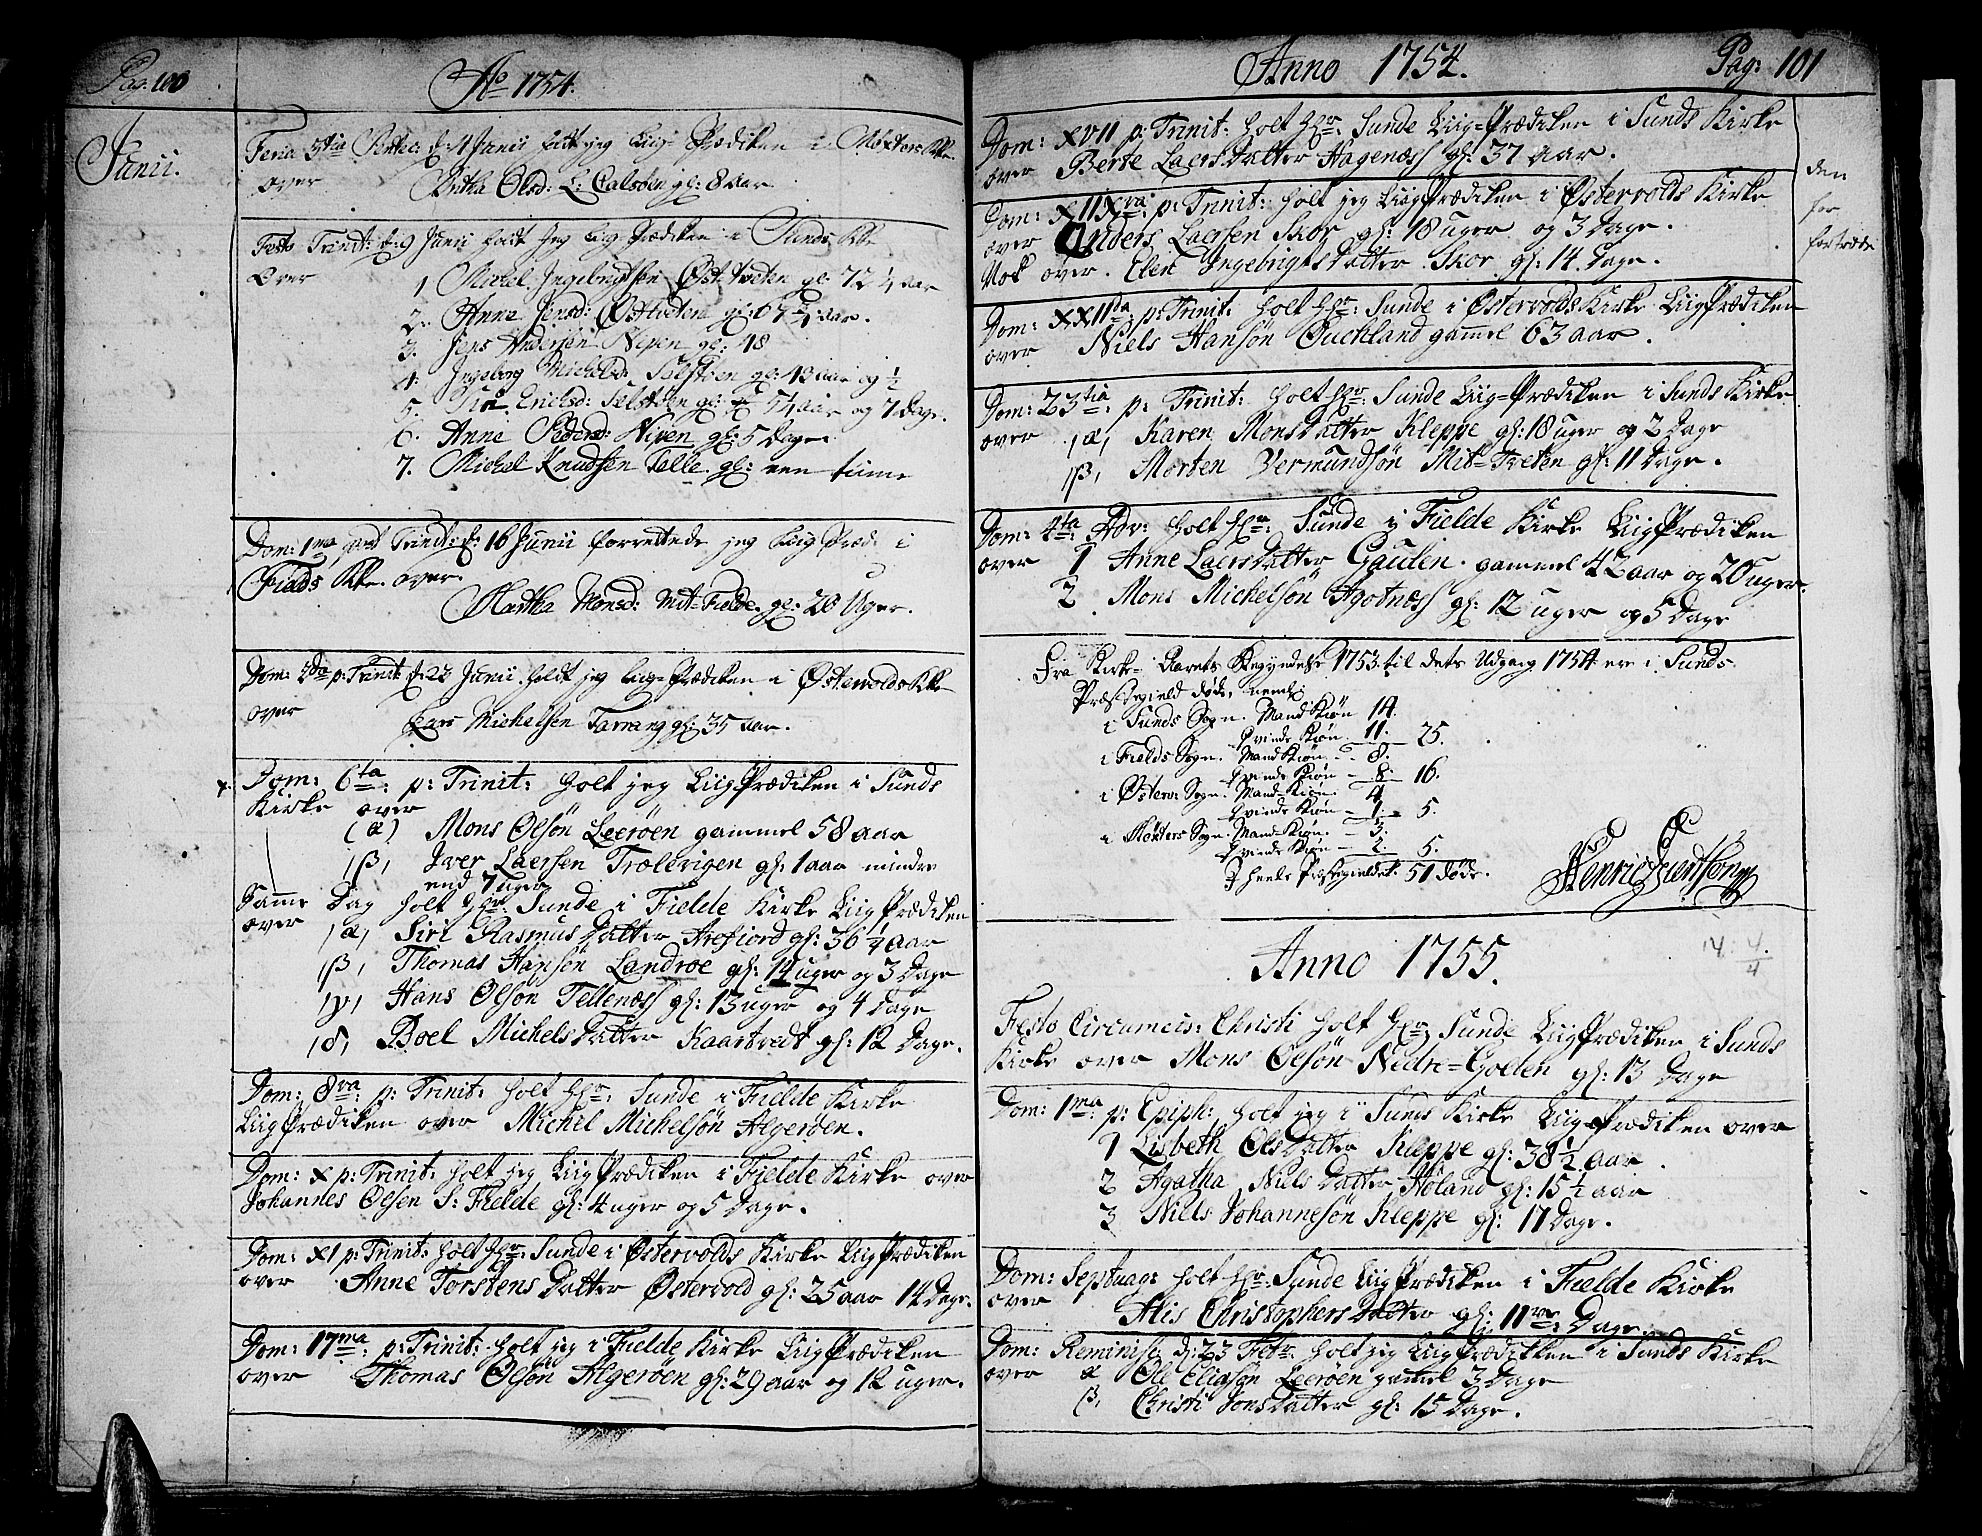 Pag: 100
Ao 1754.
Junii.
Feria 3tia Pentec: d: 4 Junii holt jeg Liig-Prædiken i Møxters Kke
over Brita Olsd: L: Calsøen gl: 8 aar
Festo Trinit: d: 9 Junii holdt jeg Liig Prædiken i Sunds Kke
Over
1 Michel Ingebrigtsen Øst-Tveten gl: 72 1/4 aar
2. Anne Jensd: Østtveten gl: 67 aar.
3. Jens Andersen Nipen gl: 48
4. Ingeborg Michelsd: Selstøen gl: 13 aar og 1/2
5. Siri Erichsd: Selstøen gl: 5 1/4 aar og 7 Dage.
6. Anne Pedersd: Nipen gl: 5 Dage
7. Michel Knudsen Telle gl: een time
Dom: 1ma post Trinit: d: 16 Junii forrettede jeg Liig Præd: i
Fields Kke. over
Martha Monsd: Mit-Fielde gl: 20 Uger.
Dom: 2da p: Trinit d: 23 Junii holdt jeg Liig-Prædiken i Østervolds Kke
over
Lars Michelsen Tarrang gl: 35 aar.
Dom: 6ta p: Trinit: holt jeg LiigPrædiken i Sunds
Kirke over
(α) Mons Olsøn Leerøen gammel 58 aar
(β) Iver Laersen Trælevigen gl: 1 aar mindre
end 7 uger
Samme Dag holt Hr: Sunde i Fielde Kirke LiigPrædiken
over (α) Siri RasmusDatter Arefiord gl: 36 1/4 aar
(β) Thomas Hansøn Landroe gl: 14 uger og 3 Dage
(γ) Hans Olsøn Tellenæss gl: 13 uger og 4 Dage
(δ) Boel MichelsDatter Kaartvedt gl: 12 Dage.
Dom: 8va: p: Trinit: holt Hr: Sunde i Fielde Kirke
LiigPrædiken over Michel Michelsøn Algerøen.
Dom: X p: Trinit: holt jeg LiigPrædiken i Fielde Kirke over
Johannes Olsen S: Fielde gl: 4 uger og 5 Dage.
Dom: XI p: Trinit: holt Hr: Sunde i Østervolds Kirke LiigPrædiken
over Anne TorstensDatter Østervold gl: 25 aar 14 Dage.
Dom: 17ma: p: Trinit: holt jeg i Fielde Kirke LiigPrædiken
over Thomas Olsøn Algerøen gl: 29 aar og 12 uger.
Anno 1754. Pag: 101
Dom: XVII p: Trinit: holt Hr: Sunde Liig-Prædiken i Sunds Kirke
over Berte LaersDatter Hagenæss gl: 37 aar.
den
for
Dom: p: Trinit: holt jeg LiigPrædiken i Østervolds Kirke
over Anders Laersen Skor gl: 18 uger og 3 Dage.
Nok over. Elen IngebrigtsDatter Skor gl: 14 Dage.
Dom: XXIIda p: Trinit: holt Hr: Sunde i Østervolds Kirke LiigPrædiken
over Niels Hansøn Buchland gammel 63 aar.
Dom: 23tia: p: Trinit: holt Hr: Sunde Liig-Prædiken i Sunds Kirke
over (α) Karen MonsDatter Kleppe gl: 18 uger og 2 Dage
(β) Morten Vermundsøn Mit-Tveten gl: 11 Dage.
Dom: 4ta: Adv: holt Hr: Sunde i Fielde Kirke LiigPrædiken
over 1 Anne LaersDatter Gaulen gammel 42 aar og 20 uger.
2 Mons Michelsøn Agotnæss gl: 12 uger og 5 Dage
Fra Kirke-Aarets Begyndelse 1753 til dets Udgang 1754 ere i Sunds
Præstegield døde, nemlig
i Sunds Sogn. Mand Kiøn 14.
Qvinde Kiøn. 11. 25.
i Fields Sogn. Mand Kiøn 8.
Qvinde Kiøn 8. 16.
i Østerv: Sogn. Mand-Kiøn 4
Qvinde Kiøn 1. 5.
i Møxters Sogn. Mand-Kiøn. 3.
Qvinde Kiøn 2. 5.
I heele Præstegieldet. 51 døde.
Anno 1755.
14: 4/4
Festo Circumcis: Christi holt Hr: Sunde LiigPrædiken i Sunds
Kirke over Mons Olsøn Nedre-Golten gl: 13 Dage
Dom: 1ma: p: Epiph: holt jeg i Sunds Kirke LiigPrædiken over
1 Lisbeth OlsDatter Kleppe gl: 38 1/2 aar
2 Agatha NielsDatter Høland gl: 15 1/2 aar
3 Niels Johannesøn Kleppe gl: 17 Dage.
Dom: Septuag: holt Hr: Sunde LiigPrædiken i Fielde Kirke
over Alis ChristophersDatter gl: 11ve: Dage
Dom: Reminisc: d: 23 Febr: holt jeg LiigPrædiken i Sunds Kirke
over α Ole Eliasøn Leerøen gammel 3 Dage
β, Christi JonsDatter gl: 15 Dage.